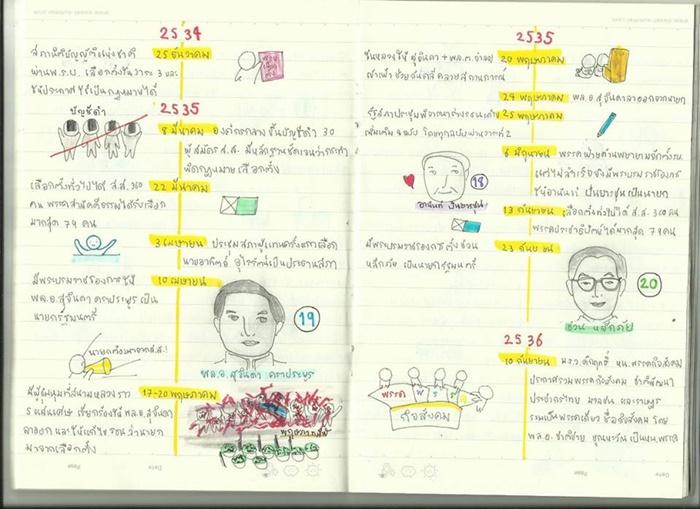 2534
สภานิติบัญญัติแห่งชาติ
25 ธันวาคม
ผ่าน พ.ร.บ. เลือกตั้งวันวาระ 3 และ
ให้ประกาศใช้เป็นกฎหมายได้
2535
บัญชีดำ
8 มีนาคม องค์กรกลาง ขึ้นบัญชีดำ 30
ผู้สมัคร ส.ส. มีหลักฐานชัดเจนว่ากระทำ
ผิดกฎหมายเลือกตั้ง
เลือกตั้งทั่วไปได้ ส.ส. 360
22 มีนาคม
คน พรรคสามัคคีธรรมได้รับเลือก
มากสุด 79 คน
3 เมษายน ประชุมสภาผู้แทนครั้งแรกเลือก
นายอาทิตย์ อุไรรัตน์เป็นประธานสภา
มีพระบรมราชโองการให้
10 เมษายน
พล.อ.สุจินดา คราประยูร เป็น
นายกรัฐมนตรี
19
นายกต้องมาจาก ส.ส.!
พล.อ. สุจินดา คราประยูร
มีผู้ชุมนุมที่สนามหลวงราว
17-20 พฤษภาคม
5 แสนเศษ เรียกร้องให้ พล.อ.สุจินดา
ลาออก และให้แก้ไข รธน ว่านายก
มาจากเลือกตั้ง
พฤษภาทมิฬ
2535
ในหลวงให้ สุจินดา + พล.ต.จำลอง
20 พฤษภาคม
เข้าเฝ้า ช่วยกันคลี่คลายสถานการณ์
24 พฤษภาคม พล.อ สุจินดาลาออกจากนายก
25 พฤษภาคม
เพิ่มเติม 4 ฉบับ
6 มิถุนายน
ให้อานันท์ เป็นนายก
18
อานันท์ ปันยารชุน
13 กันยายน เลือกตั้งทั่วไปได้ ส.ส 360 คน
พรรคประชาธิปัตย์ได้มากสุด 79 คน
มีพระบรมราชโองการตั้งชวน
23 กันยายน
หลีกภัย เป็นนายกรัฐมนตรี
20
ชวน หลีกภัย
2536
10 กันยายน หน.พรรคกิจสังคม
ประกาศรวมพรรคกิจสังคม ชาติพัฒนา
ประชากรไทย มวลชน และราษฎร
รวมเป็นพรรคเดียว ชื่อกิจสังคม โดย
พล.อ. ชาติชาย ชุณหะวัณ เป็นหน.พรรค
พรรค
กิจสังคม
Date Page